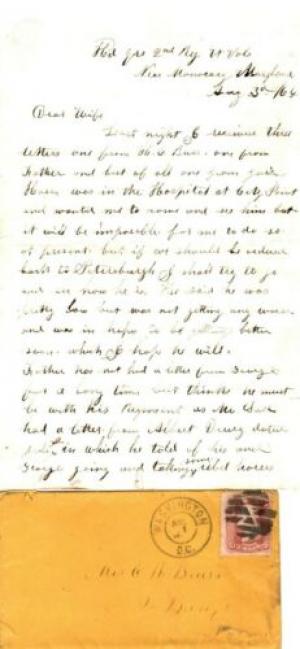 Hd Qrs 2nd Reg Vt Vols
Near Monocacy Maryland
Aug 3rd /64
Dear Wife
Last night I receive three
letters one from one from
Father and best of all one from you
was in the Hospital at City Point
and wanted me to come and see him but
it will be impossible for me to do so
at present but if we should be ordered
back to Petersburgh I shall try to go
and see how he is. He said he was
pretty low but was not getting any worse
and was in hopes to be getting better
soon which I hope he will.
Father has not had a letter from George
for a long time but thinks he must
be with his Regiment as Mr
had a letter from Albert
in which he told of his and
George going and taking some rebel horses
WASHINGTON
D.C.